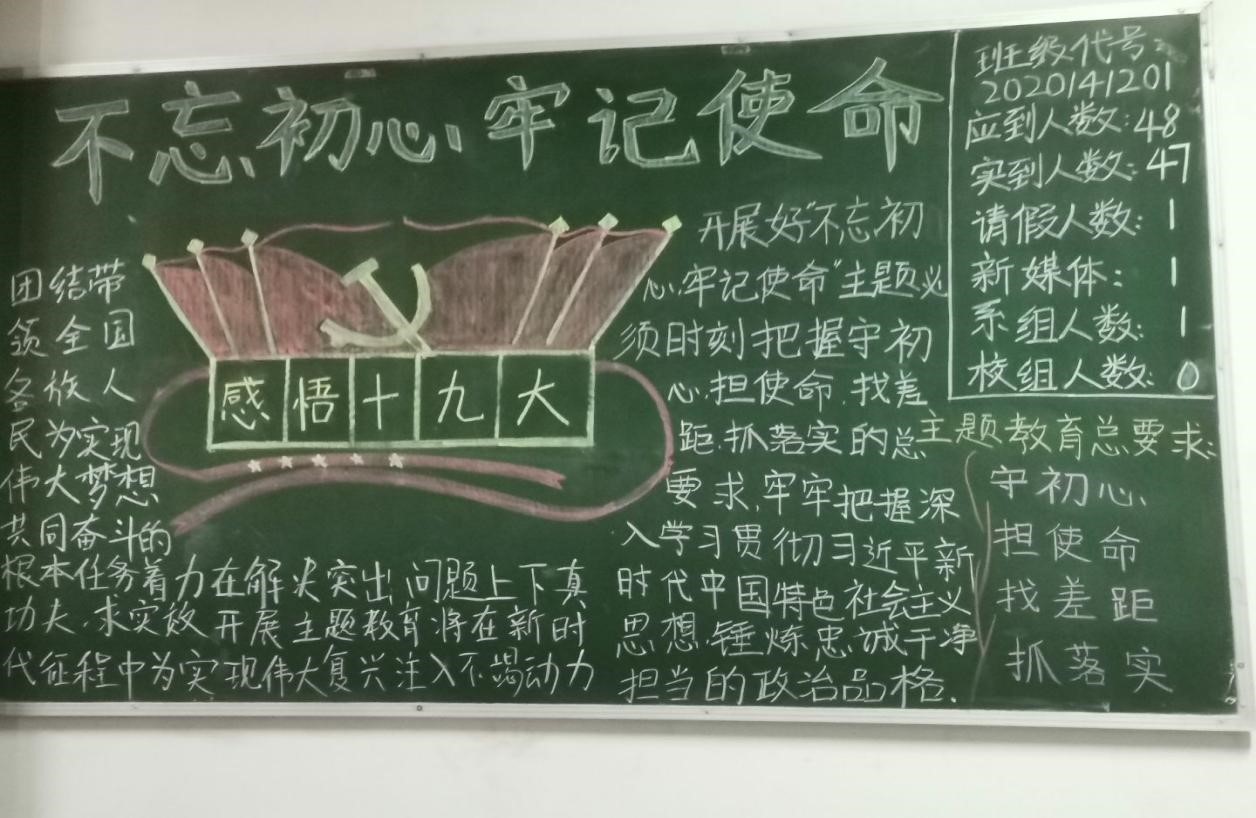 不忘初心牢记使命
感悟十九大
团结带
领全国
各族人
民为实现
伟大梦想
共同奋斗的
根本任务着力在解决突出问题上下真
功夫.求实效开展主题教育将在新时
代征程中为实现伟大复兴注入不竭动力
开展好"不忘初
心.牢记使命"主题必
须时刻把握守初
心.担使命.找差
距.抓落实的总
要求,牢牢把握深
入学习贯彻习近平新
时代中国特色社会主义
思想.锤炼忠诚干净
担当的政治品格.
班级代号
2020141201
应到人数:48
实到人数:47
请假人数:1
新媒体:1
系组人数:1
校组人数:0
主题教育总要求:
守初心
担使命
找差距
抓落实